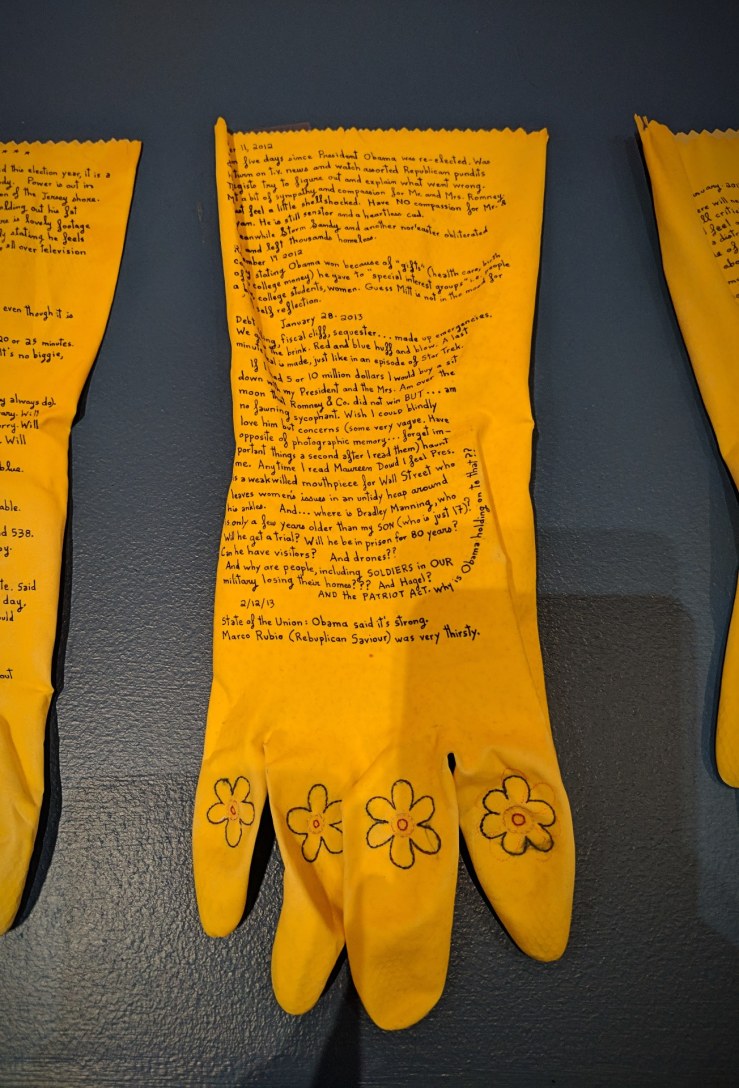 id this election year, it is a
dy. Power is out in
en of the Jersey shore.
olding out his fat
re is lovely footage
ly stating he feels
all over television
even though it is
20 or 25 minutes.
It's no biggie,
y always do?
ary. Will
orry. Will
. Will
blue.
able.
d 538.
oy.
te. Said
day,
uld
out
11, 2012
five days since President Obama was re-elected. Was
turn on T.V. news and watch assorted Republican pundits
try to figure out and explain what went wrong.
a bit of sympathy and compassion for Mr. and Mrs. Romney,
feel a little shellshocked. Have NO compassion for Mr. R
He is still senator and a heartless cad.
Meanwhile Storm Sandy and another nor'easter obliterated
and left thousands homeless.
17 2012
stating Obama won because of "gifts" (health care, birth
college money) he gave to "special interest groups" i.e. people
college students, women. Guess Mitt is not in the mood for
self reflection.
Debt January 28-2013
We fiscal cliff, sequester... made up emergencies,
minute the brink. Red and blue huff and blow. A last
is made, just like in an episode of Star Trek.
If 5 or 10 million dollars I would buy a sit
down my President and the Mrs. Am over the
moon that Romney & Co. did not win BUT... am
no fawning sycophant. Wish I could blindly
love him but concerns (some very vague. Have
opposite of photographic memory... forget im-
portant things a second after I read them) haunt
me. Anytime I read Maureen Dowd I feel Pres.
is a weakwilled mouthpiece for Wall Street who
leaves women's issues in an untidy heap around
his ankles. And... where is Bradley Manning, who
is only a few years older than my SON (who is just 17)??
Will he get a trial? Will he be in prison for 80 years?
Can he have visitors? And drones??
And why are people, including SOLDIERS in OUR
military losing their homes??? And Hagel?
AND the PATRIOT ACT. WHY is Obama holding on to that??
2/12/13
State of the Union: Obama said it's strong.
Marco Rubio (Rebuplican Saviour) was very thirsty.